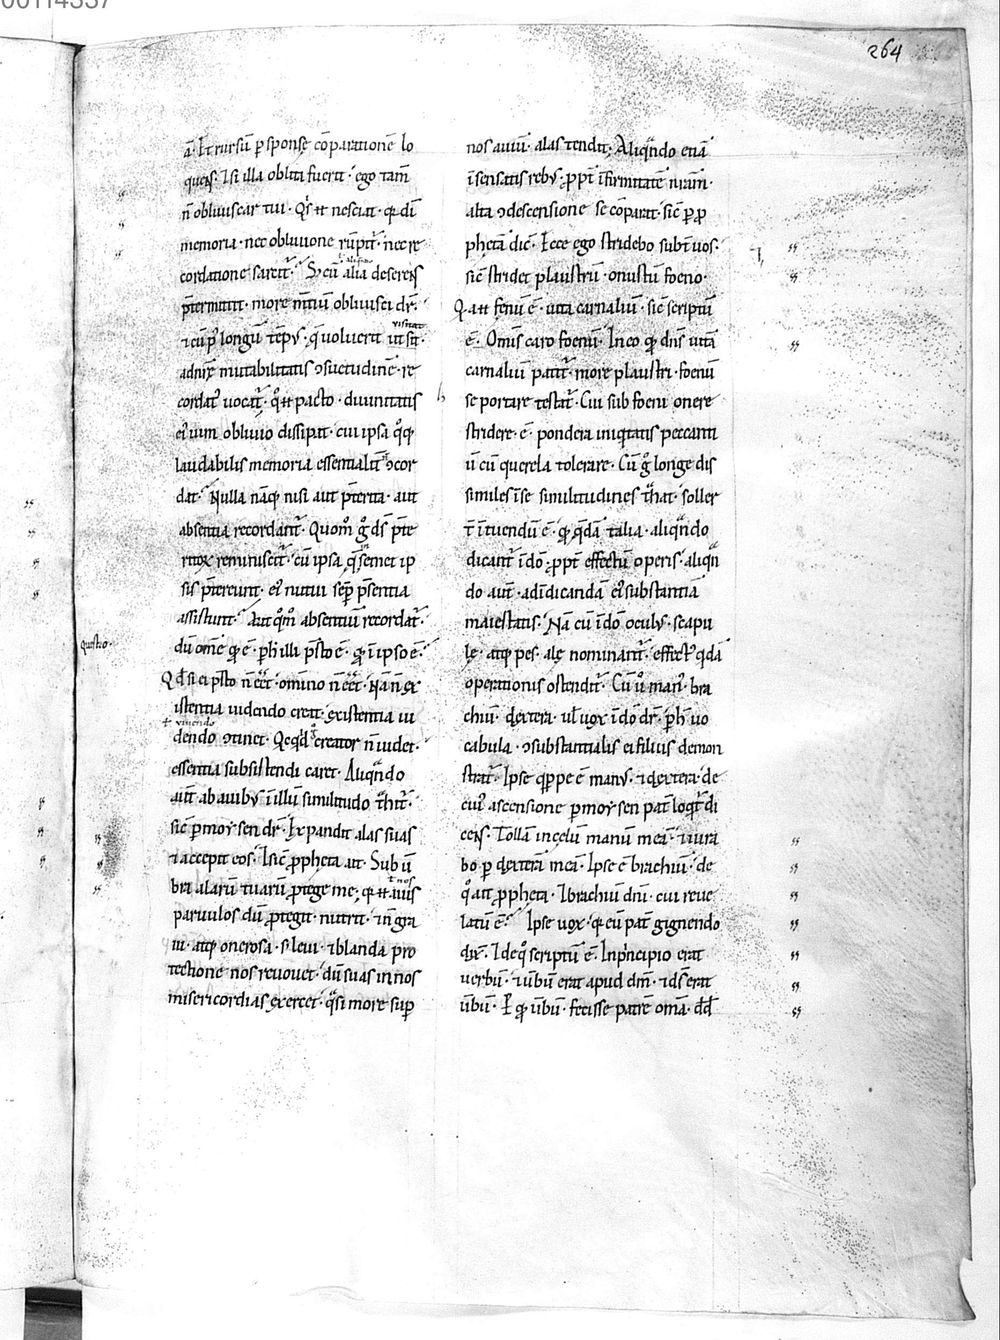 264
ā. Et rursū p sponsę cōparationē lo
queis. Isi illa oblita fuerit. ego tam̄
n̄ obliuiscar tui. Qs nesciat. qd di
memoria. nec obliuione rūpit̄. nec re
cordatione sarcit̄. S; cū alia deserens
p̄termittit. more mītiū obliuisci dr̄.
⁊ cū p longū tēpꝰ. q̄ voluerit uisit.
visitat
mutabilitatis ɔsuetudinē. re
cordat̄ uocat̄. pacto. diuinitatis
eiꝰ uim obliuio dissipat. cui ipsa q̊q;
laudabilis memoria essentialit̄ ɔcor
dat. Nulla nāq; nisi aut p̄terita. aut
absentia recordant̄. Quom̊ g̊ ds̄ p̄te
ritoꝝ reminiscit̄. cū ipsa q̄ semet ip
sis p̄tereunt. eiꝰ nutui semp p̄sentia
assistunt. Aut q̊m̊ absentiū recordat̄.
questio.
dū om̄e qd ē. ph̄ illi p̄sto ē. qd ī ipso ē.
Qd si ei p̄sto n̄ eēt. omino n̄ eēt. Nā n̄ ex
istentia uidendo creat. existentia ui
ł vivendo
dendo ɔtinet. Qcqd g̊ creator n̄ uidet.
essentia subsistendi caret. Aliqn̄do
aut̄ ab auibꝰ ī illū similitudo t̄hit̄.
sic̄ p moysen dr̄. Expandit alas suas
⁊ accepit eos. Isic̄ ꝓpheta ait. Sub ū
bra alarū tuarū ꝓtege me. q̄a nos
paruulos dū ꝓtegit. nutrit. ⁊ n̄ gra
ui. atq; onerosa. s; leui. ⁊ blanda pro
tectione nos reuouet. dū suas in nos
misericordias exercet. q̄si more sup
nos auiū. alas tendit; Aliqn̄do etiā
īsensatis rebꝰ. ꝓpt̄ īfirmitatē nrām.
alta ɔdescensione se cōparat. sic̄ p ꝓ
phetā dic̄. Ecce ego stridebo subt̄ uos.
sic̄ stridet plaustrū. onustū foeno.
Qa fenū ē. uita carnaliū. sic̄ scriptū
ē. Om̄is caro foenū. In eo qd dn̄s uitā
carnaliū patit̄. more plaustri. foenū
se portare testat̄. Cui sub foeni onere
stridere. ē. pondera iniq̄tatis peccanti
ū cū querela tolerare. Cū g̊ longe dis
similes ī se similitudines t̄hat. soller
t̄ ītuendū ē. qd q̄dā talia. aliqn̄do
dicant̄ ī dō. ꝓpt̄ effectū operis. aliqn̄
do aut̄. ad īdicandā eiꝰ substantiā
maiestatis. Nā cū ī dō oculꝰ. scapu
lę. atq; pes. alę nominant̄. effectꝰ q̄dā
operationis ostendit̄. Cū ů manꝰ. bra
chiū. dextera. ul̄ uox ī dō dr̄. ph̄ uo
cabula. ɔsubstantialis ei filius demon
strat̄. Ipse q̄ppe ē manꝰ. ⁊ dextera. de
cuiꝰ ascensione p moysen pat̄ loq̄t̄ di
cens. Tollā in cęlū manū meā. ⁊ iura
bo p dexterā meā. Ipse ē brachiū. de
q̊ ait ꝓpheta. I brachiū dn̄i. cui reue
latū ē. Ipse uox. q̄ eū pat̄ gignendo
dix̄. Ideq̊ scriptū ē. In p̄ncipio erat
uerbū. ⁊ ūbū erat apud dm̄. ⁊ ds̄ erat
ūbū. P qd ūbū. fecisse patrē om̄a. dd